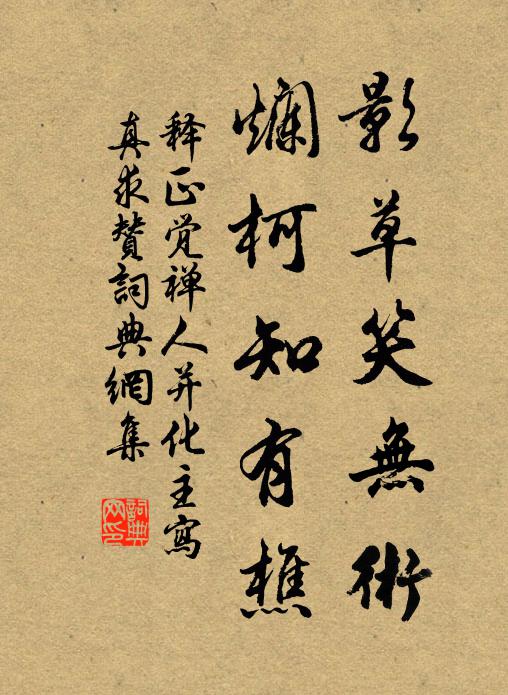 影草笑無術
爛柯知有樵
释正覚禅人并化主寫
真求賛詞典網集
詞典
网印